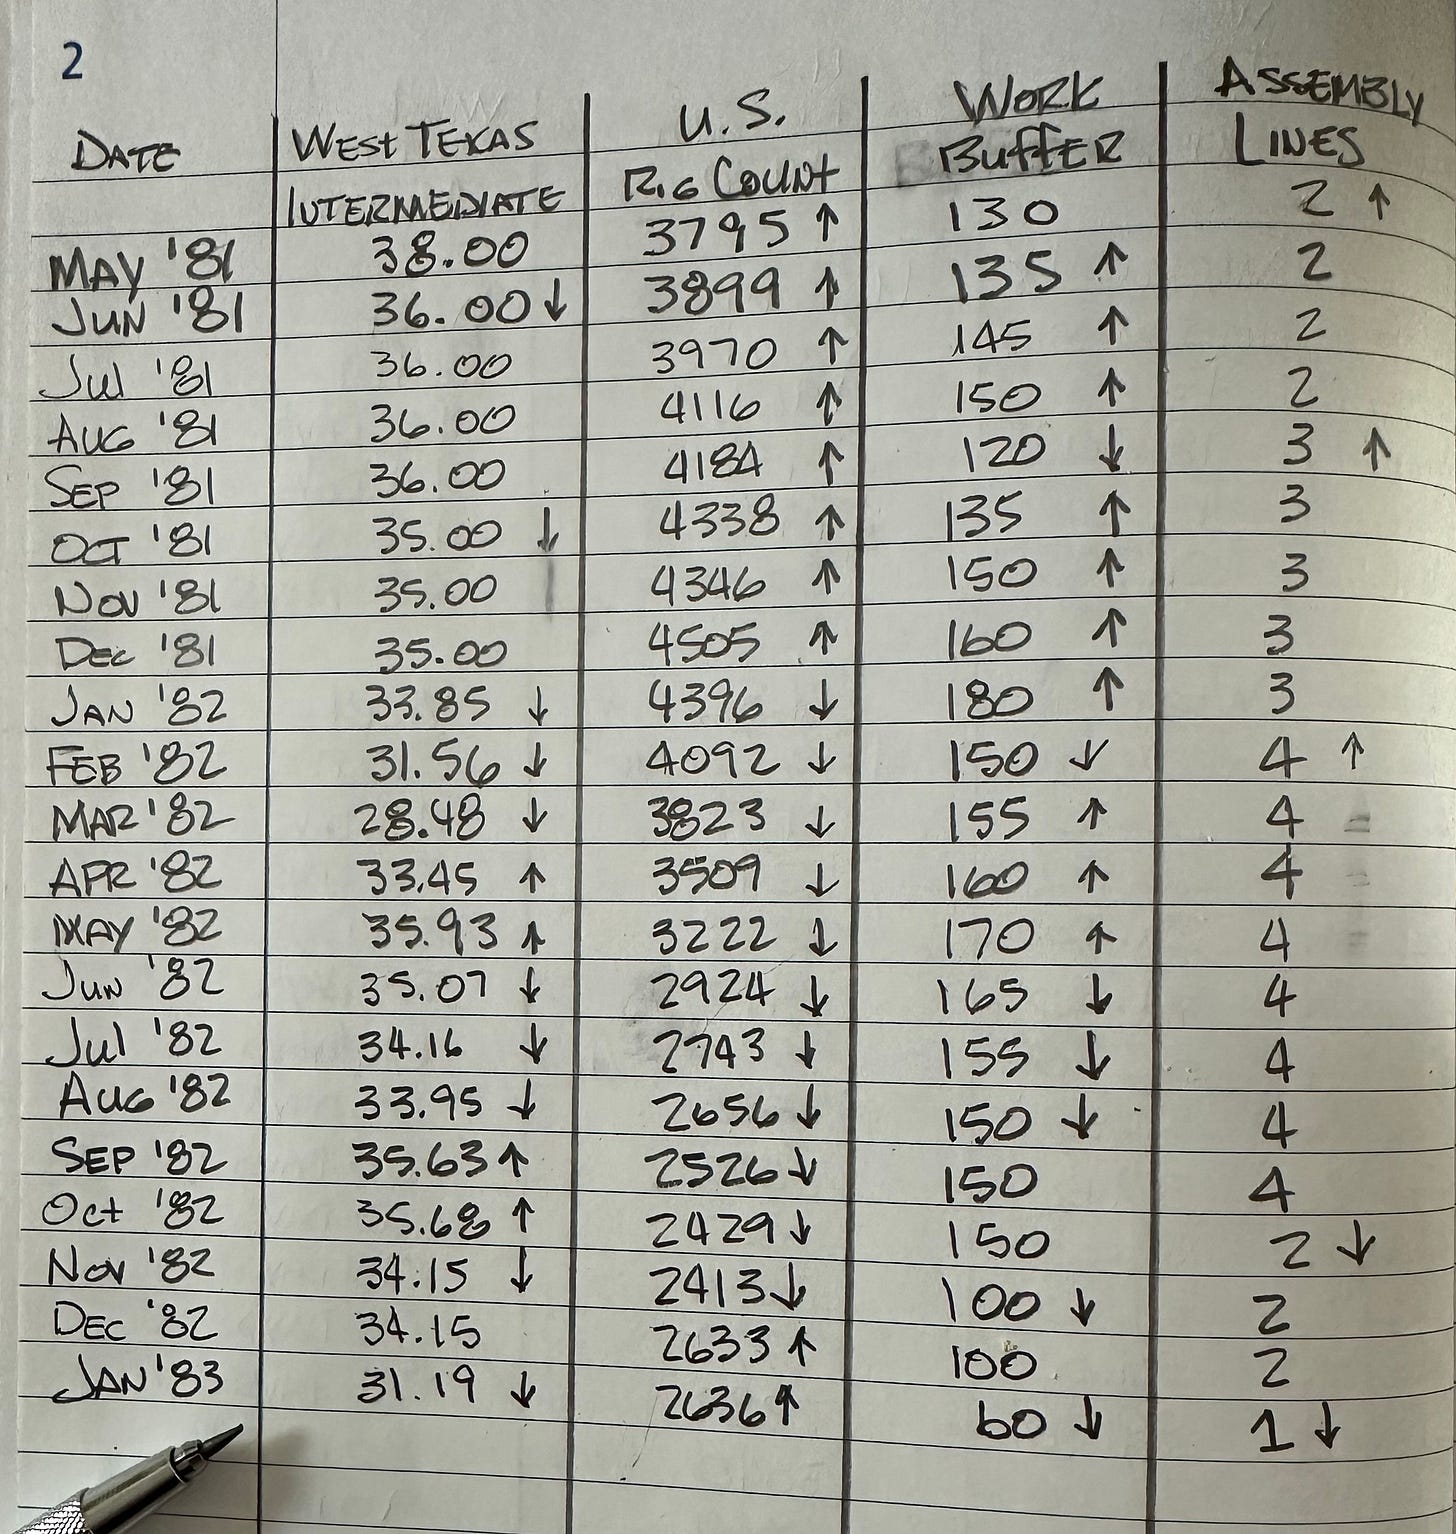 2
DATE WEST TEXAS INTERMEDIATE U.S. RIG COUNT WORK BUFFER ASSEMBLY LINES
MAY '81 38.00 3795 ↑ 130 2 ↑
JUN '81 36.00 ↓ 3899 ↑ 135 ↑ 2
Jul '81 36.00 3970 ↑ 145 ↑ 2
AUG '81 36.00 4116 ↑ 150 ↑ 2
SEP '81 36.00 4184 ↑ 120 ↓ 3 ↑
OCT '81 35.00 ↓ 4338 ↑ 135 ↑ 3
NOV '81 35.00 4346 ↑ 150 ↑ 3
DEC '81 35.00 4505 ↑ 160 ↑ 3
JAN '82 33.85 ↓ 4396 ↓ 180 ↑ 3
FEB '82 31.56 ↓ 4092 ↓ 150 ↓ 4 ↑
MAR '82 28.48 ↓ 3823 ↓ 155 ↑ 4
APR '82 33.45 ↑ 3509 ↓ 160 ↑ 4
MAY '82 35.93 ↑ 3222 ↓ 170 ↑ 4
JUN '82 35.07 ↓ 2924 ↓ 165 ↓ 4
Jul '82 34.16 ↓ 2743 ↓ 155 ↓ 4
AUG '82 33.95 ↓ 2656 ↓ 150 ↓ 4
SEP '82 35.63 ↑ 2526 ↓ 150 4
Oct '82 35.68 ↑ 2429 ↓ 150 2 ↓
NOV '82 34.15 ↓ 2413 ↓ 100 ↓ 2
DEC '82 34.15 2633 ↑ 100 2
JAN '83 31.19 ↓ 2636 ↑ 60 ↓ 1 ↓